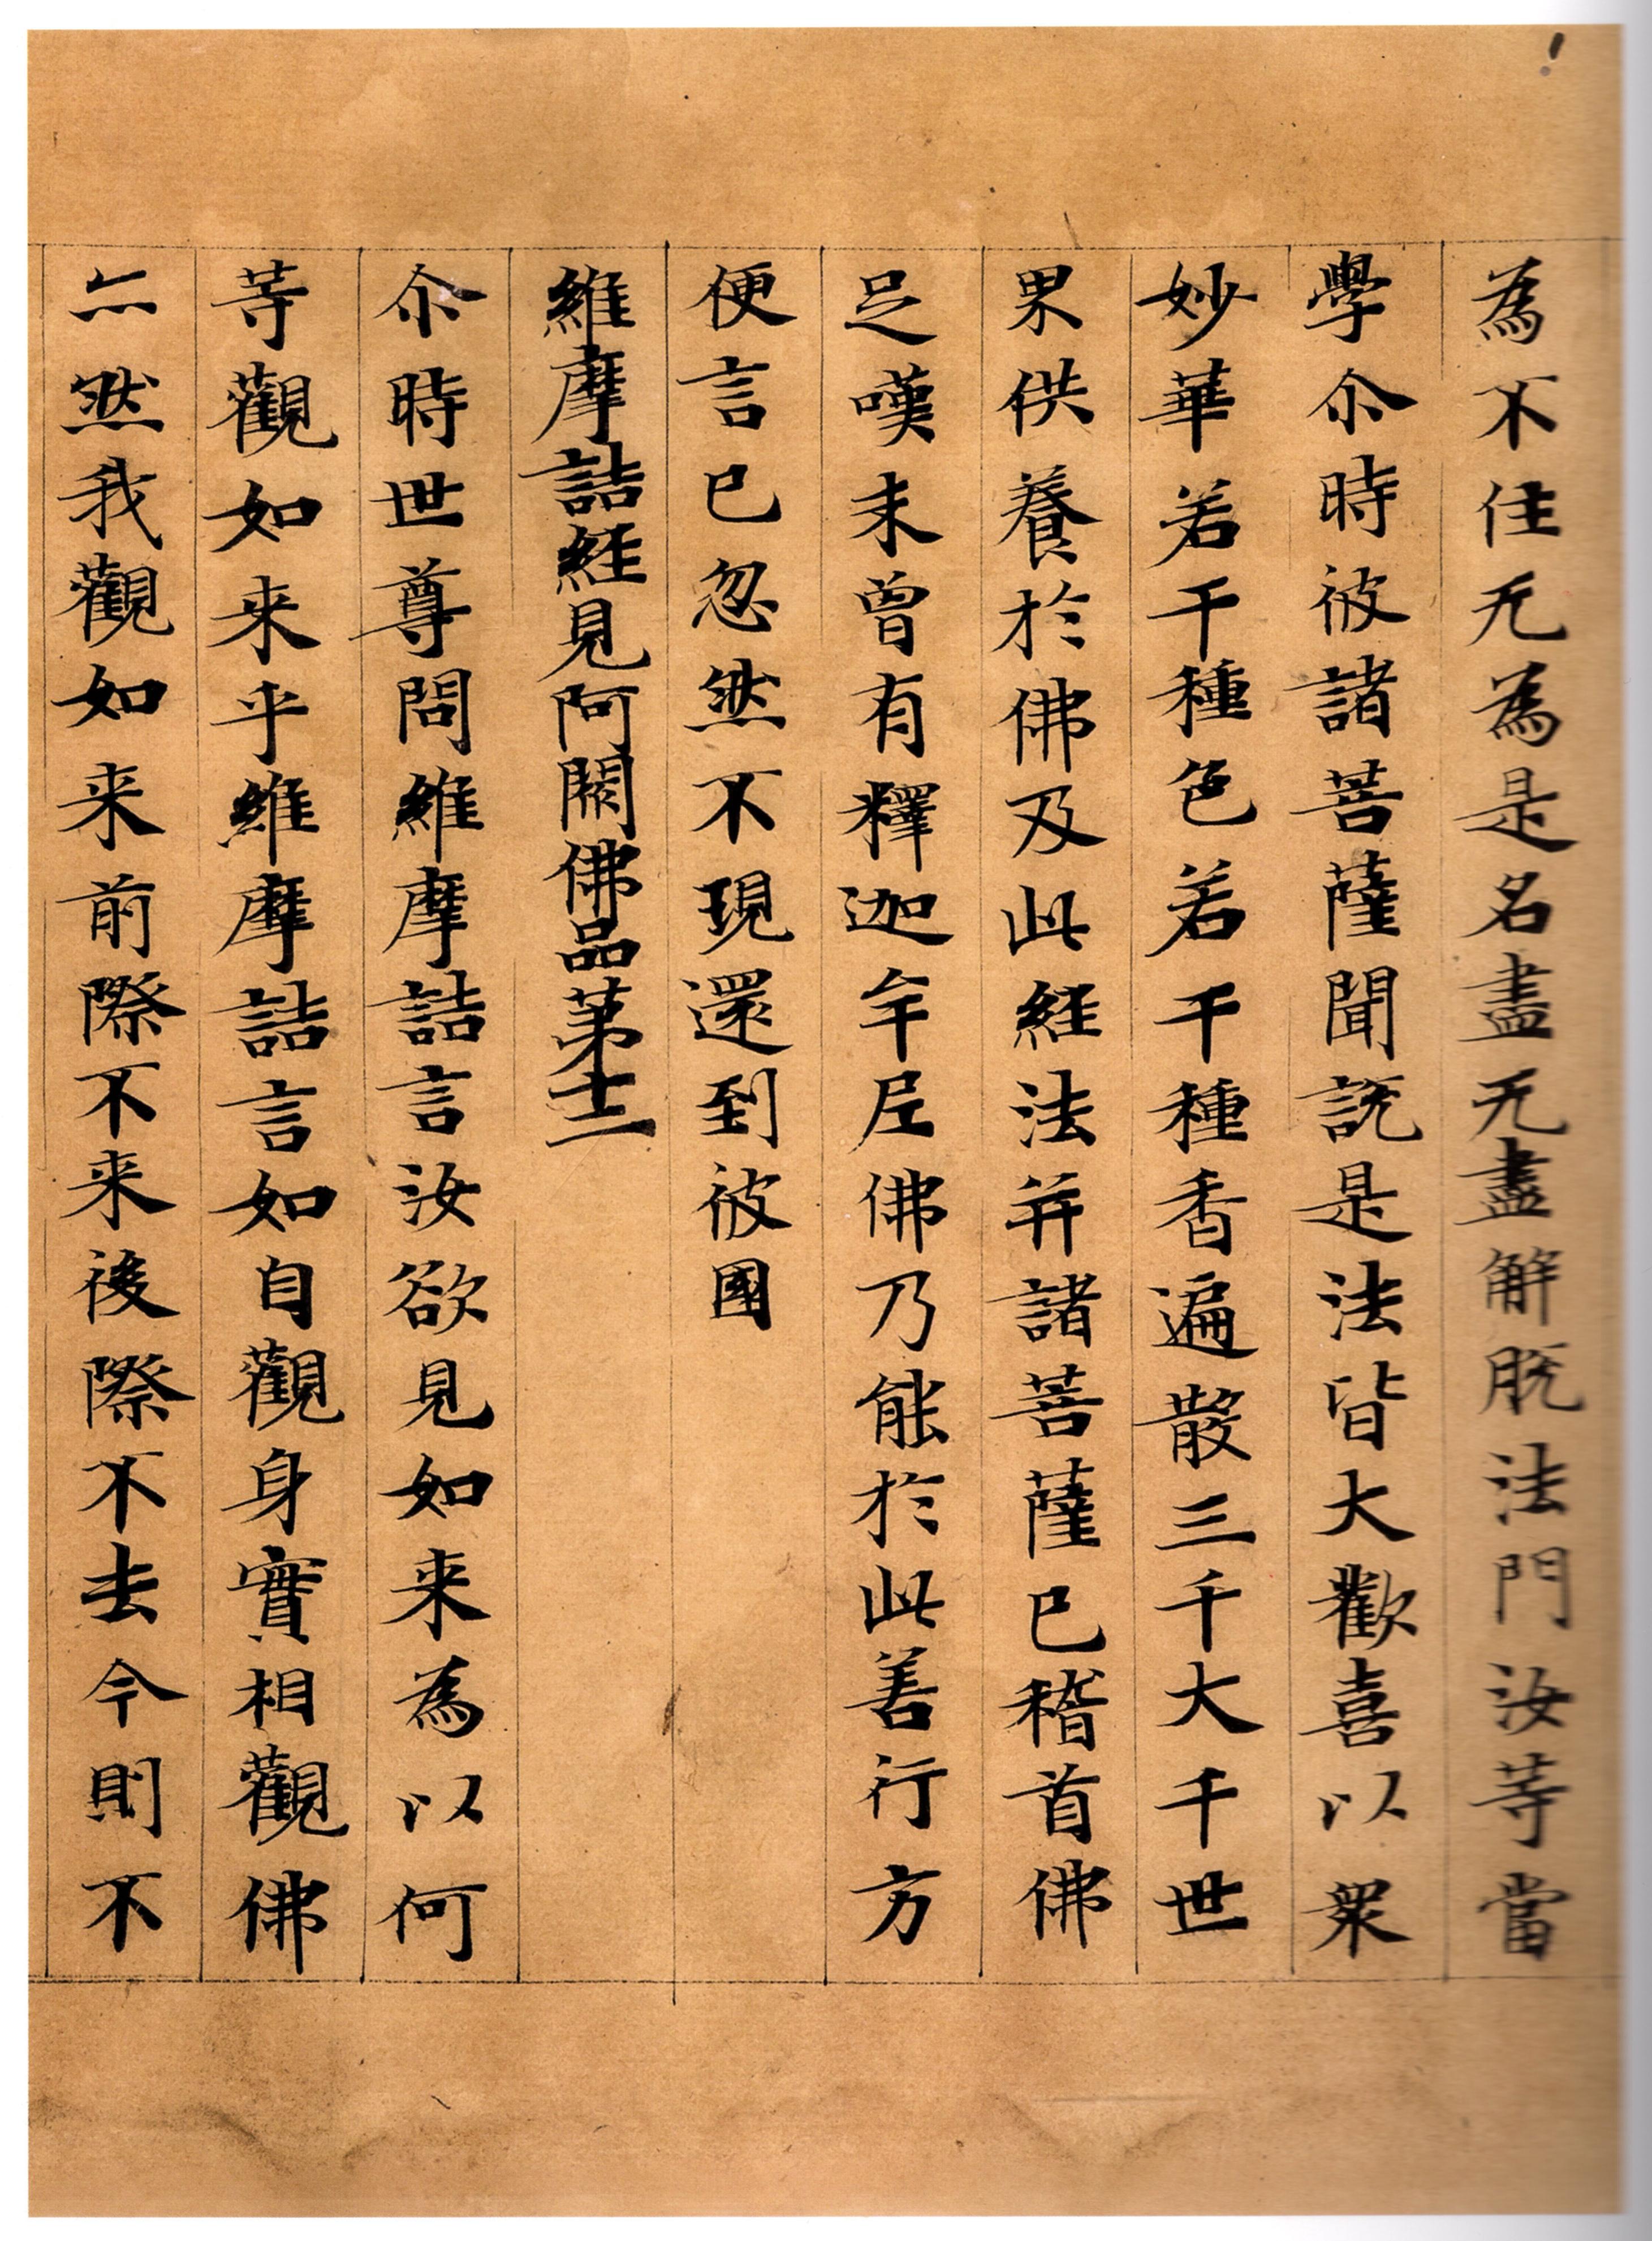 為不住无為是名盡无盡解脱法門汝等當
學尒時彼諸菩薩聞説是法皆大歡喜以衆
妙華若干種色若干種香遍散三千大千世
界供養於佛及此經法并諸菩薩已稽首佛
足嘆未曾有釋迦牟尼佛乃能於此善行方
便言已忽然不現還到彼國
維摩詰經見阿閦佛品第十二
尒時世尊問維摩詰言汝欲見如来為以何
等觀如来乎維摩詰言如自觀身實相觀佛
亦然我觀如来前際不来後際不去今則不